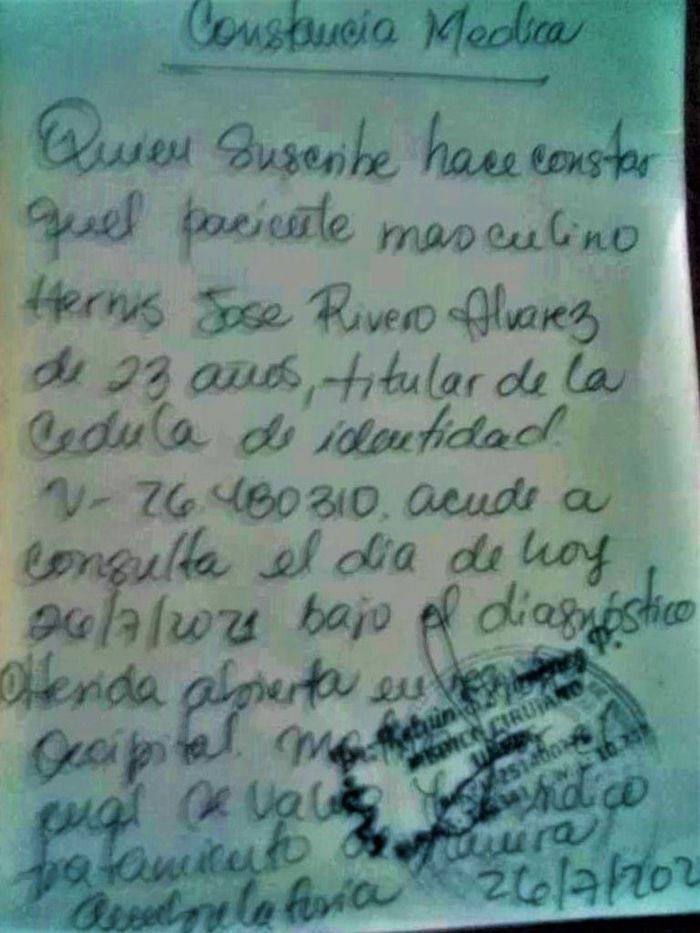 Constancia Medica
Quien Suscribe hace constar
quel paciente masculino
Hernis Jose Rivero Alvarez
de 23 años, titular de la
Cedula de identidad
V- 26.480310. acude a
consulta el dia de hoy
26/7/2021 bajo el diagnóstico
① Herida abierta en
Occipital.
cual se valora y se indico
tratamiento de manera
Ambulatoria
26/7/202
MEDICO CIRUJANO